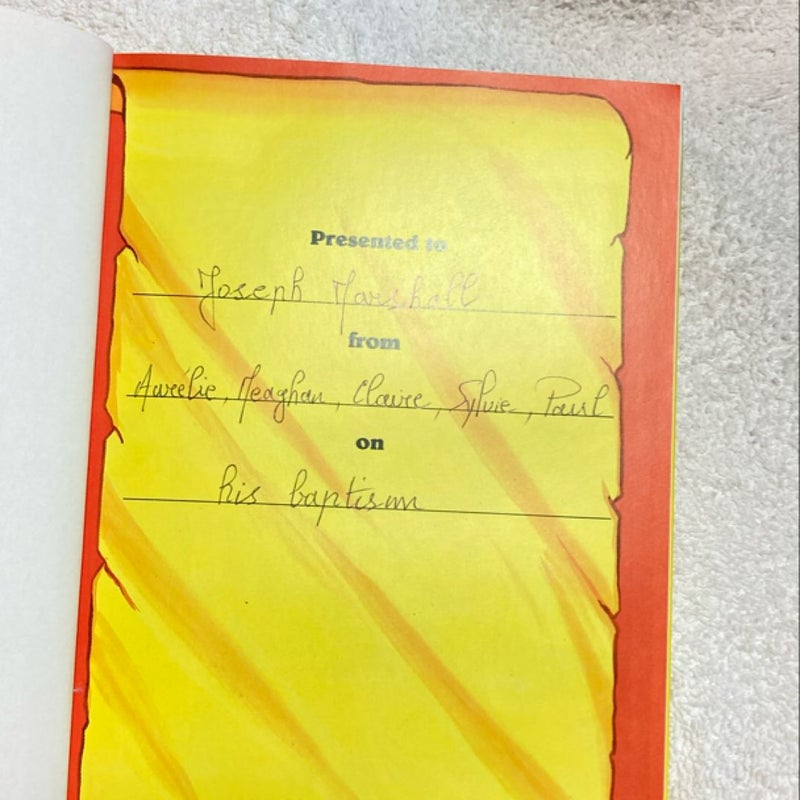 Presented to
Joseph Marshall
from
Aurélie, Meaghan, Claire, Sylvie, Paul
on
his baptism